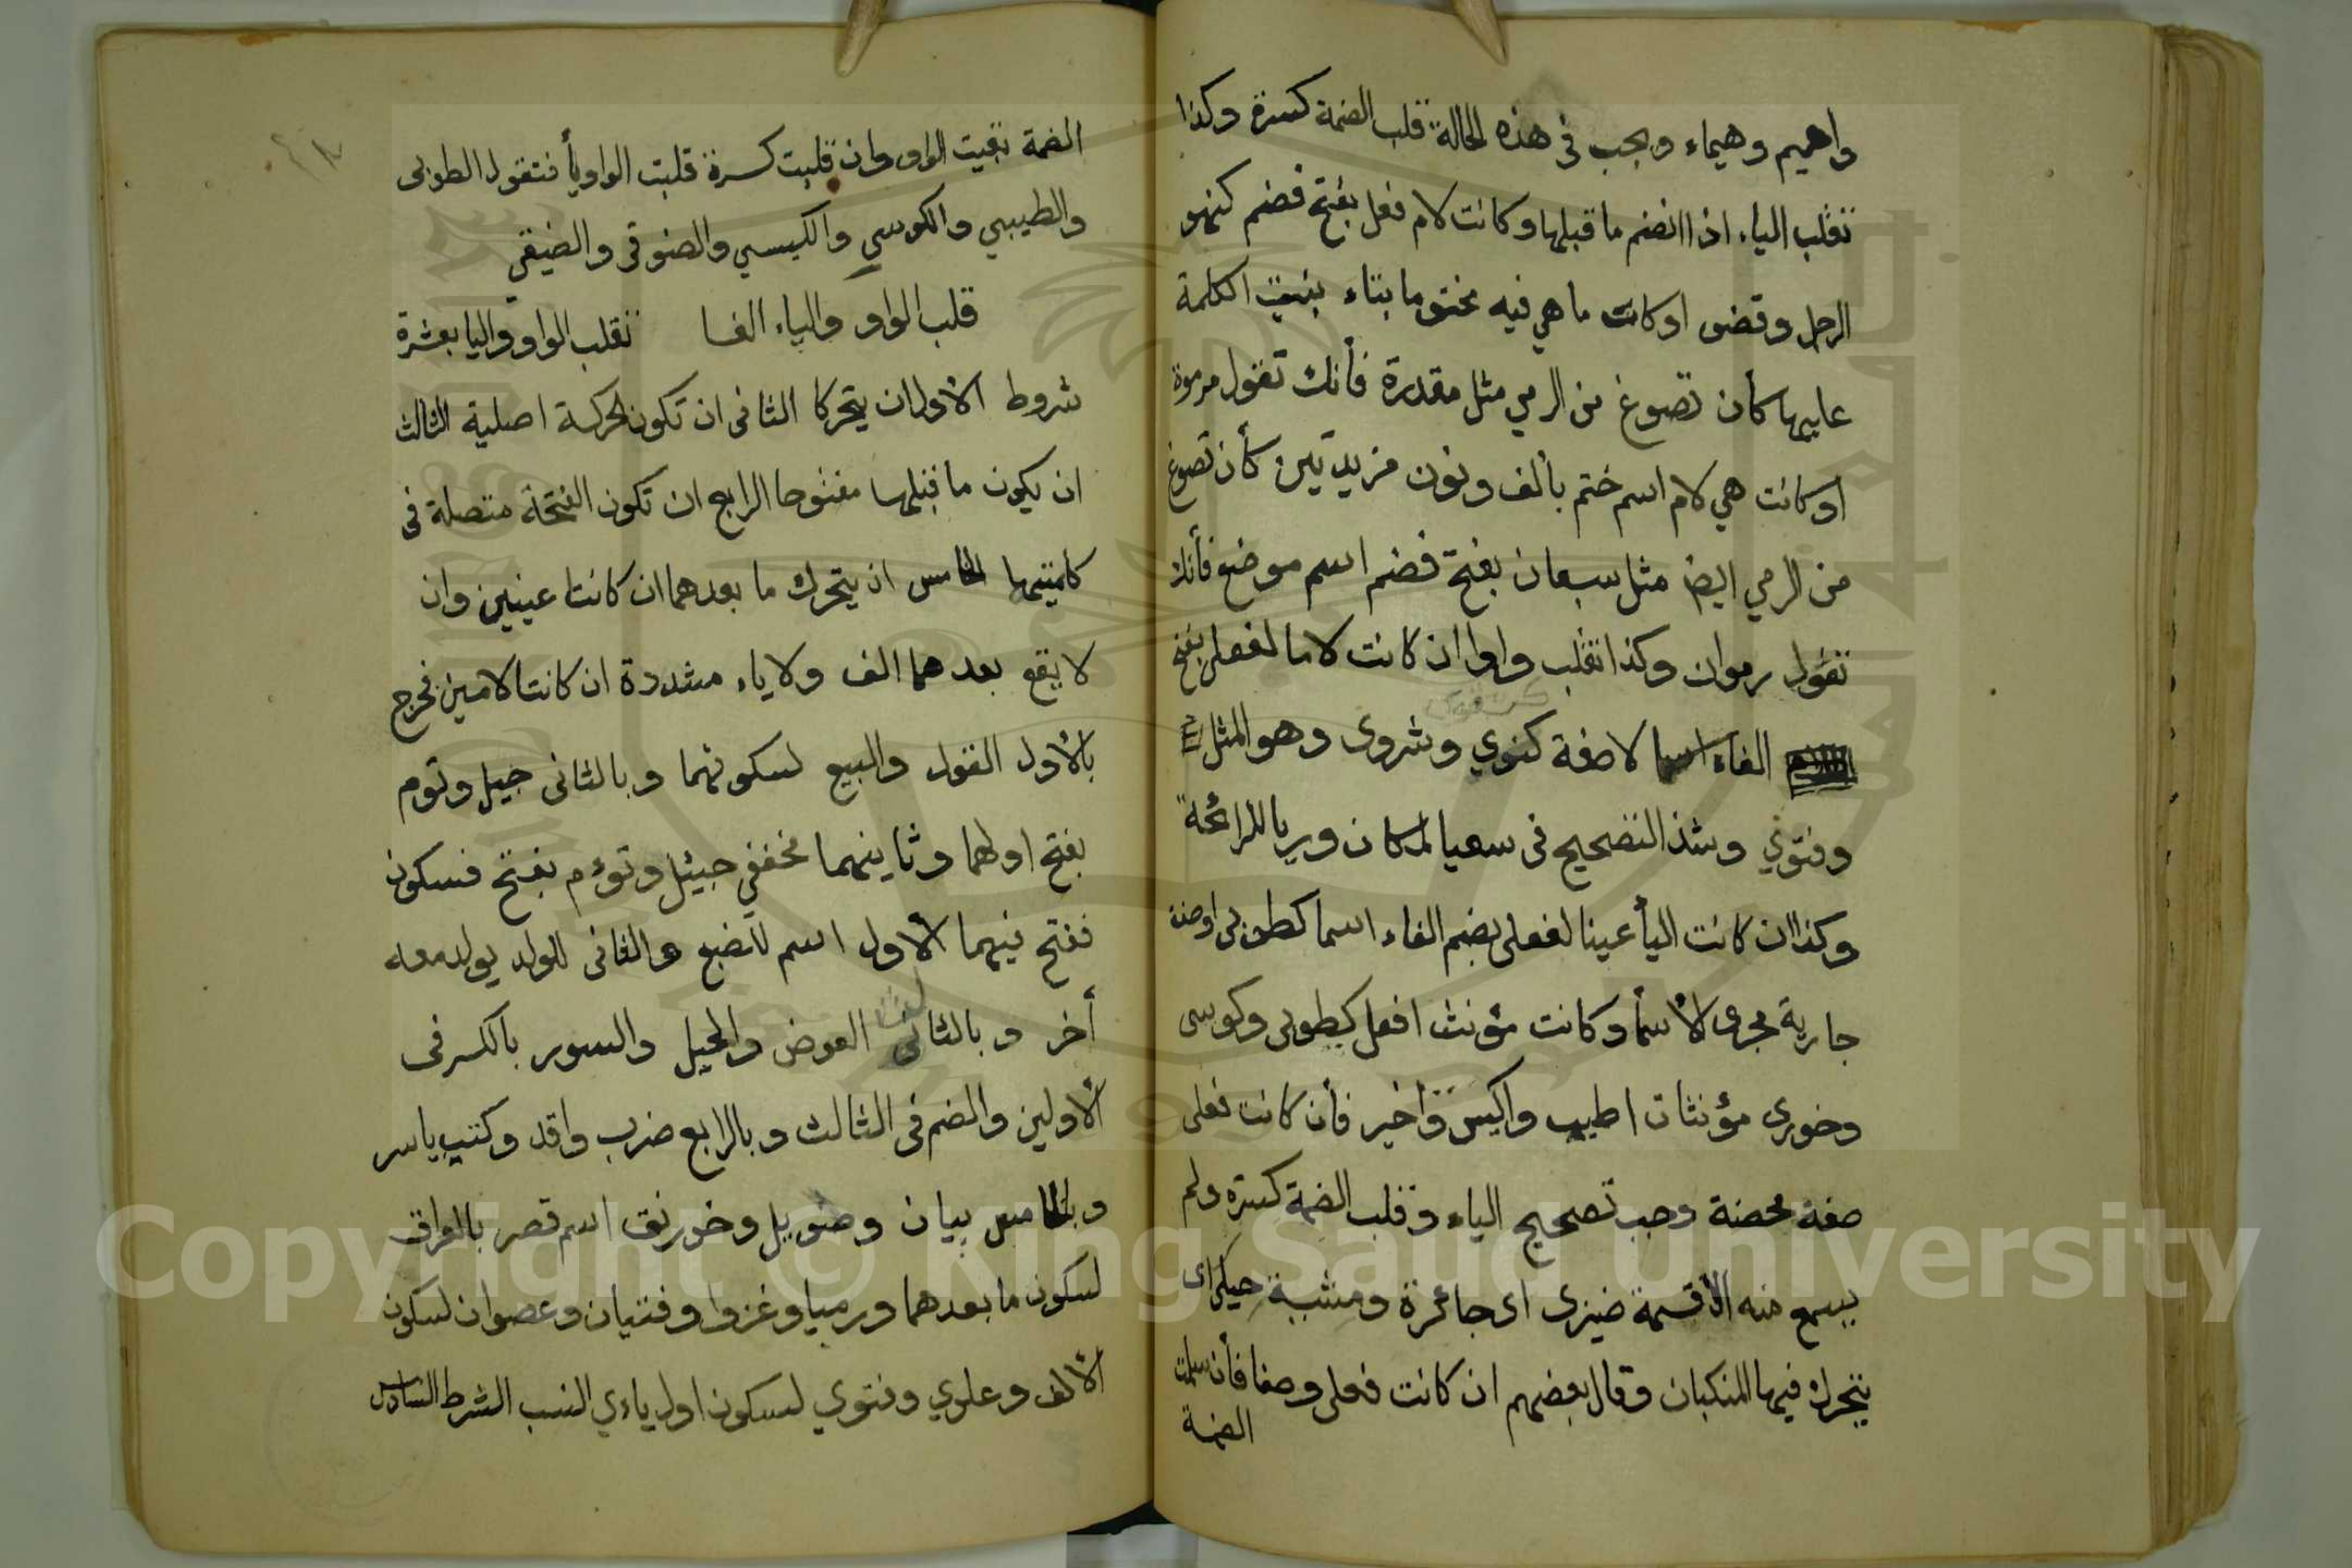 واهيم وهيماء ويجب فى هذه الحالة قلب الضمة كسرة وكذا
تقلب الياء اذا انضم ما قبلها وكانت لام فعل بفتح فضم كنهو
الرجل وقضو اوكانت ما هي فيه مختوما بتاء بنيت الكلمة
عليها كأن تصوغ من الرمي مثل مقدرة فأنك تقول مرموة
اوكانت هي لام اسم ختم بألف ونون مزيدتين كأن تصوغ
من الرمي ايضا مثل سبعان بفتح فضم اسم موضع فأنك
تقول رموان وكذا تقلب واوا ان كانت لاما لفعلى بفتح
الفاء اسما لا صفة كتقوي وشروى وهو المثل
وفتوي وشذ التصحيح فى سعيا لمكان وريا للرائحة
وكذا ان كانت اليأ عينا لفعلى بضم الفاء اسما كطوبى اوصفة
جارية مجرى الأسمأ وكانت مؤنث افعل كطوبى وكوسى
وخورى مؤنثات اطيب واكيس وأخير فأن كانت فعلى
صفة محضة وجب تصحيح الياء وقلب الضمة كسرة ولم
يسمع منه الا قسمة ضيزى اى جائرة ومشية حيكى اى
يتحرك فيها المنكبان وقال بعضهم ان كانت فعلى وصفا فأن سلمت
الضمة
الضمة بقيت الواو وان قلبت كسرة قلبت الواو يأ فتقول الطوبى
والطيبي والكوسي والكيسي والضوقى والضيقى
قلب الواو والياء الفا تقلب الواو واليا بعشرة
شروط الأول ان يتحركا الثانى ان تكون الحركة اصلية الثالث
ان يكون ما قبلها مفتوحا الرابع ان تكون الفتحة متصلة فى
كلمتيهما الخامس ان يتحرك ما بعدهما ان كانتا عينين وان
لا يقع بعدهما الف ولا ياء مشددة ان كانتا لامين فخرج
بالأول القول والبيع لسكونهما وبالثانى جيل وتوم
بفتح اولهما وثاينهما مخففي جيئل وتوءم بفتح فسكون
ففتح فيهما الأول اسم للضبع والثانى للولد يولد معه
أخر وبالثانى العوض والحيل والسور بالكسر فى
الأولين والضم فى الثالث وبالرابع ضرب واقد وكتب ياسر
وبالخامس بيان وطويل وخورنق اسم قصر بالعراق
لسكون ما بعدهما ورميا وغزوا وفتيان وعصوان لسكون
الألف وعلوي وفتوي لسكون اول ياءي النسب الشرط السادس
Copyright © King Saud University